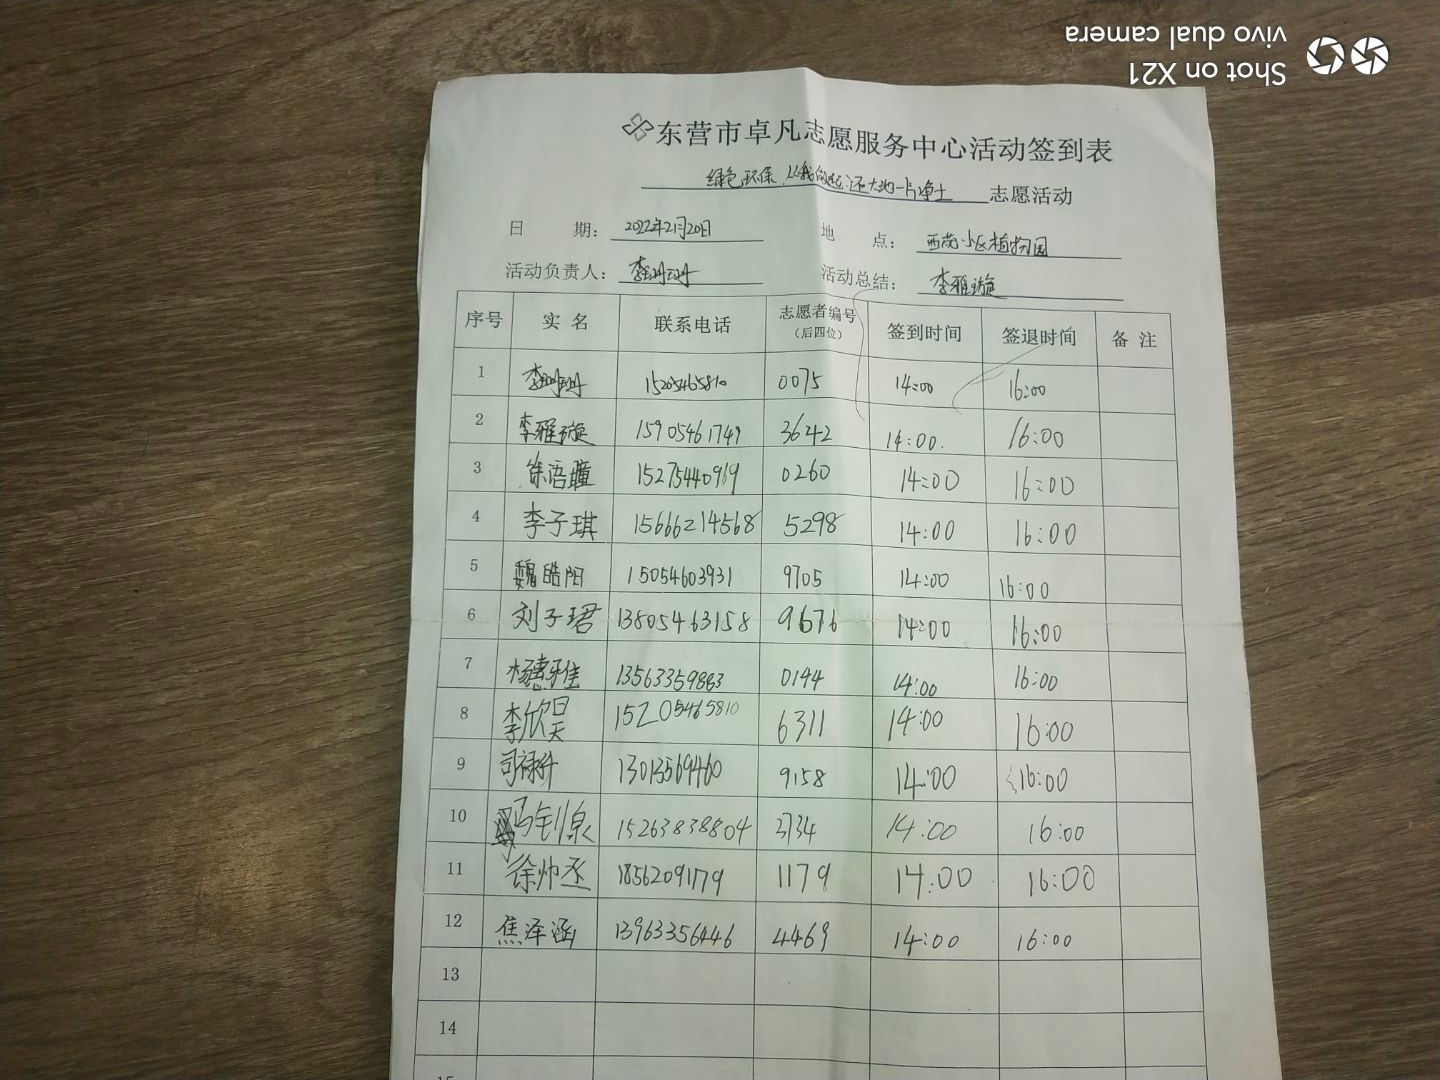 东营市卓凡志愿服务中心活动签到表
绿色环保,从我做起,还大地一片净土 志愿活动
日 期: 2022年2月20日 地 点: 西苑小区植物园
活动负责人: 李珊珊 活动总结: 李雅璇
序号 实名 联系电话 志愿者编号(后四位) 签到时间 签退时间 备注
1 李珊珊 15205465810 0075 14:00 16:00
2 李雅璇 15905461749 3642 14:00. 16:00
3 徐语瞳 15275440969 0260 14:00 16:00
4 李子琪 15666214568 5298 14:00 16:00
5 魏皓阳 15054603931 9705 14:00 16:00
6 刘子珺 13805463158 9676 14:00 16:00
7 杨惠雅 13563359883 0144 14:00 16:00
8 李欣昊 15205465810 6311 14:00 16:00
9 司禄升 13013569460 9158 14:00 16:00
10 冯钊泉 15263838804 3734 14:00 16:00
11 徐帅丞 18562091179 1179 14:00 16:00
12 焦泽涵 13963356446 4469 14:00 16:00
13
14
15
Shot on X21
vivo dual camera